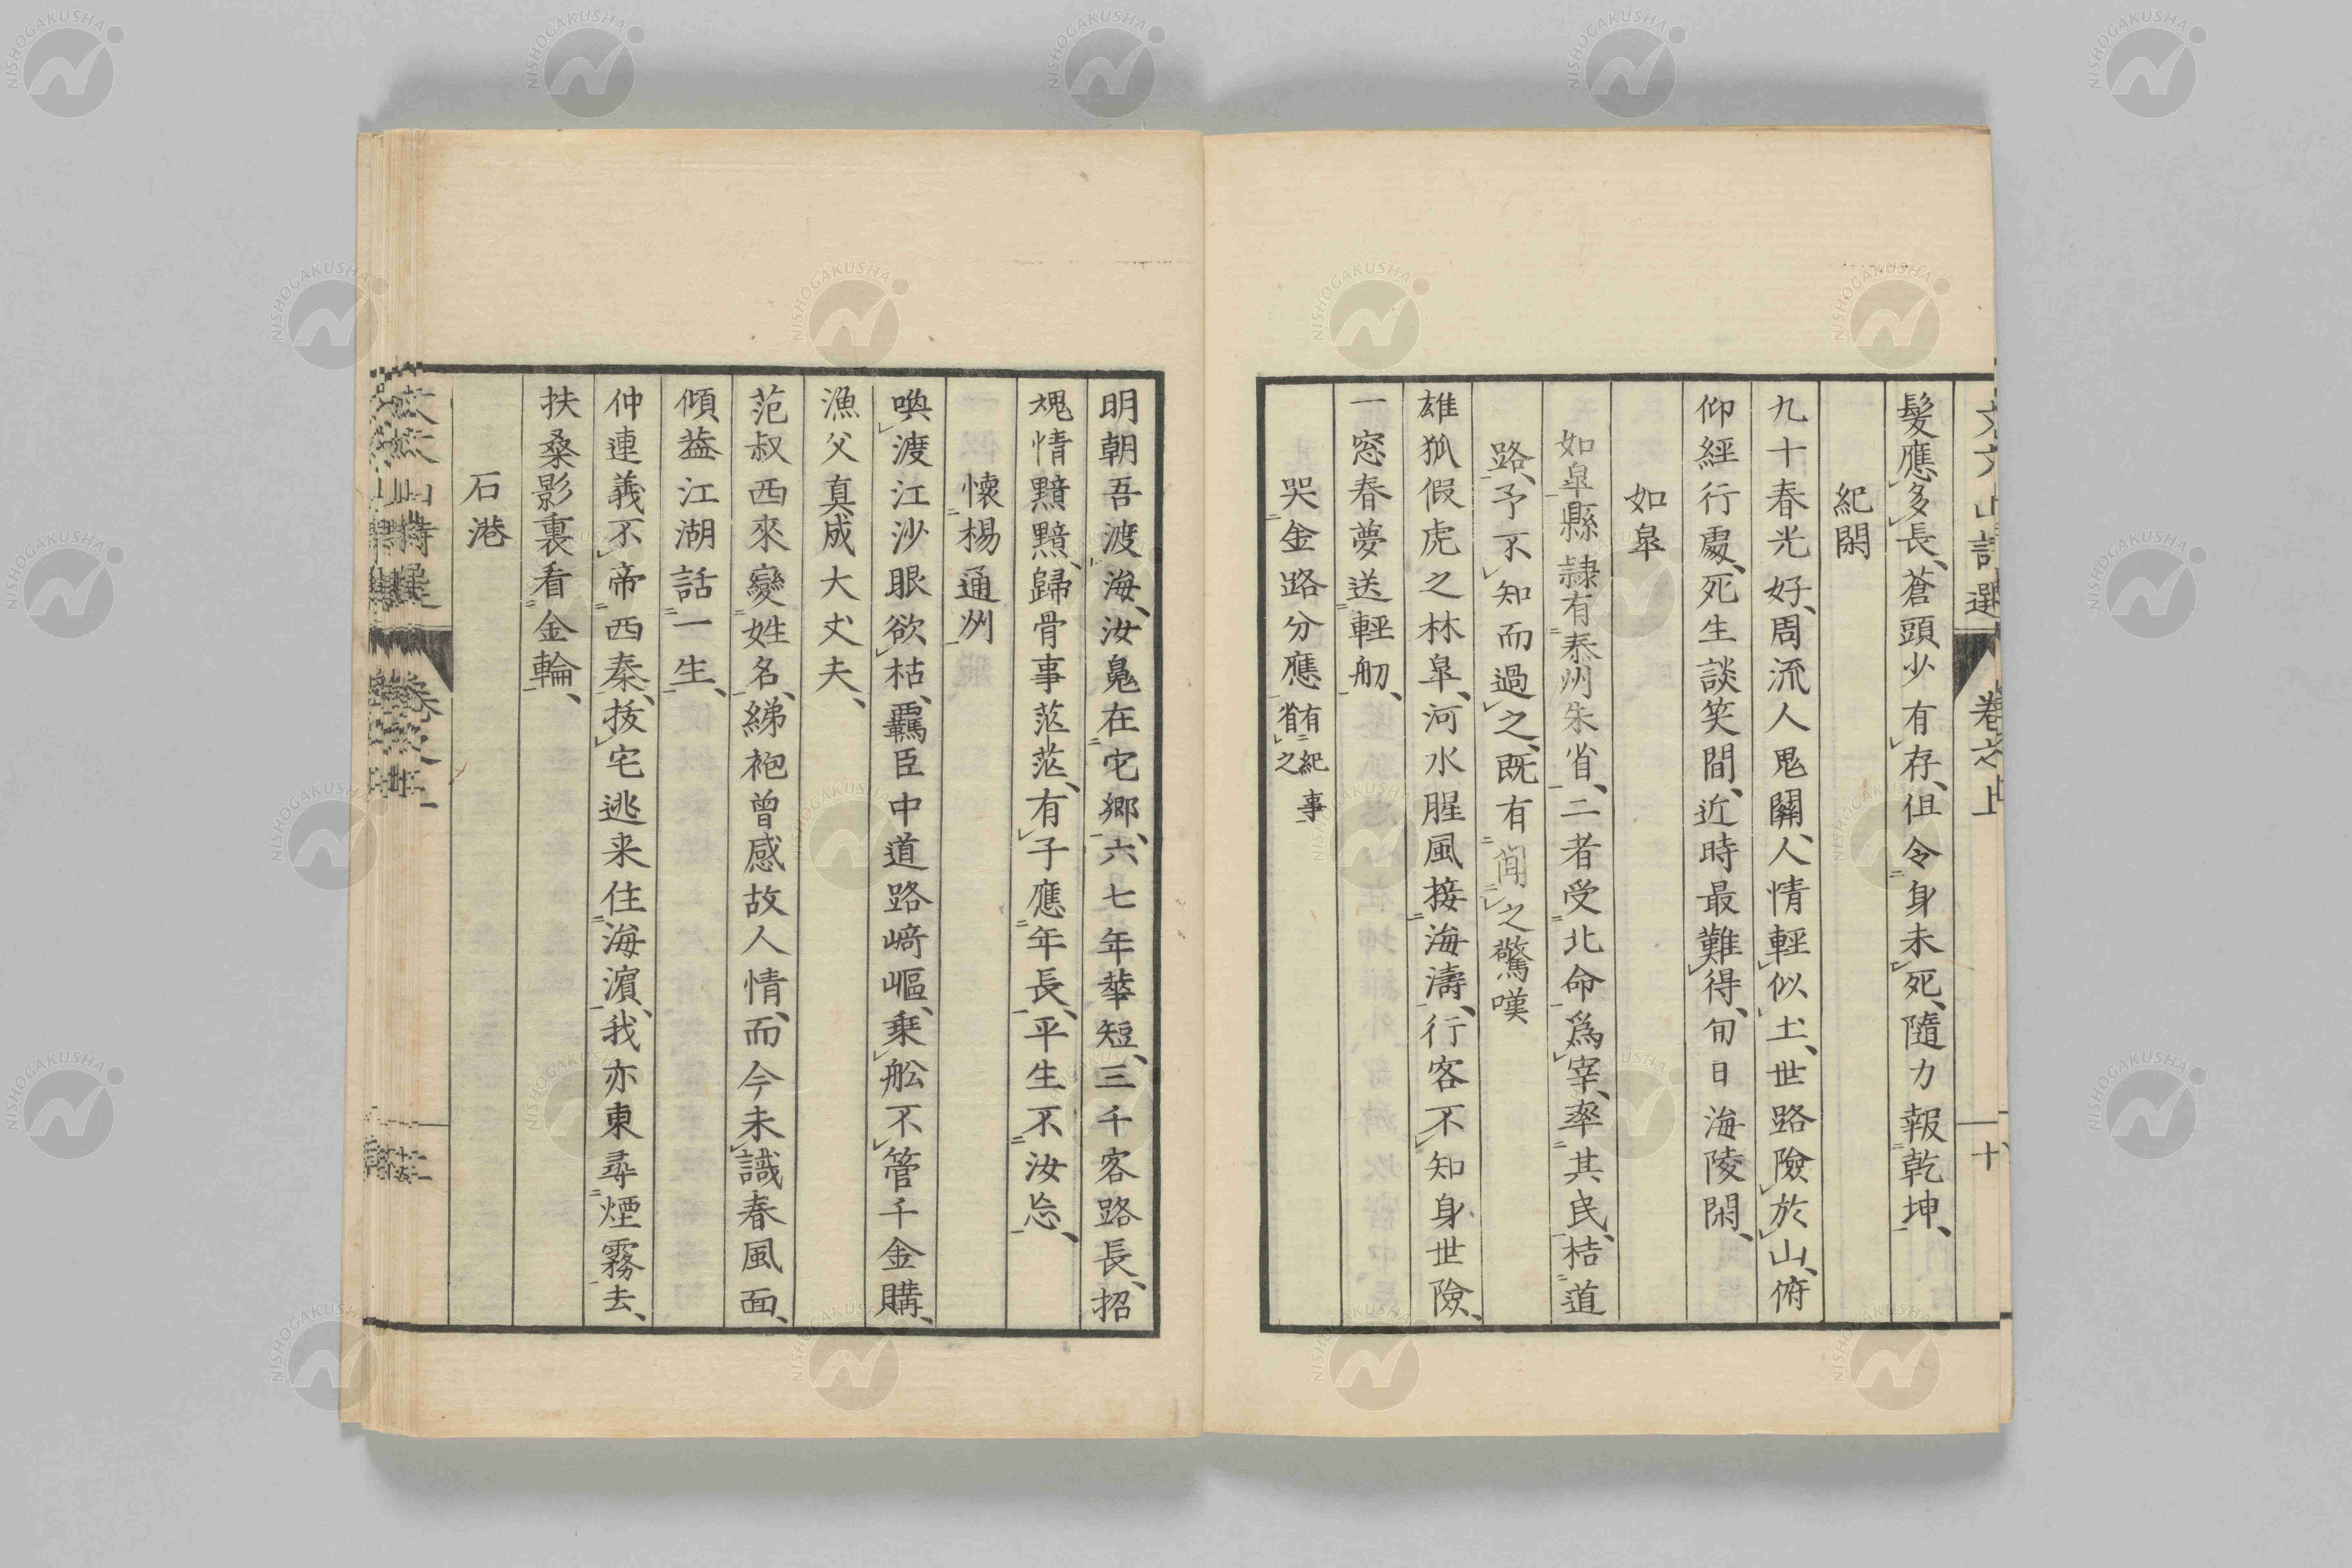 文文山詩選 卷之上 十
髮應多長、蒼頭少有存、但令身未死、隨力報乾坤、
紀閑
九十春光好、周流人鬼關、人情輕似土、世路險於山、俯
仰經行處、死生談笑間、近時最難得、旬日海陵閑、
如皐
如皐縣隷有泰州朱省、二者受北命爲宰、率其民、梏道
路、予不知而過之、既有聞之驚嘆
雄狐假虎之林皐、河水腥風接海濤、行客不知身世險、
一窓春夢送輕舠、
哭金路分應 有紀事
省之
明朝吾渡海、汝鬼在它鄉、六七年華短、三千客路長、招
魂情黯黯、歸骨事茫茫、有子應年長、平生不汝忘、
懷楊通州
喚渡江沙眼欲枯、羈臣中道路崎嶇、乗舩不管千金購、
漁父真成大丈夫、
范叔西來變姓名、綈袍曾感故人情、而今未識春風面、
傾蓋江湖話一生、
仲連義不帝西秦、拔宅逃来住海濵、我亦東尋煙霧去、
扶桑影裏看金輪、
石港